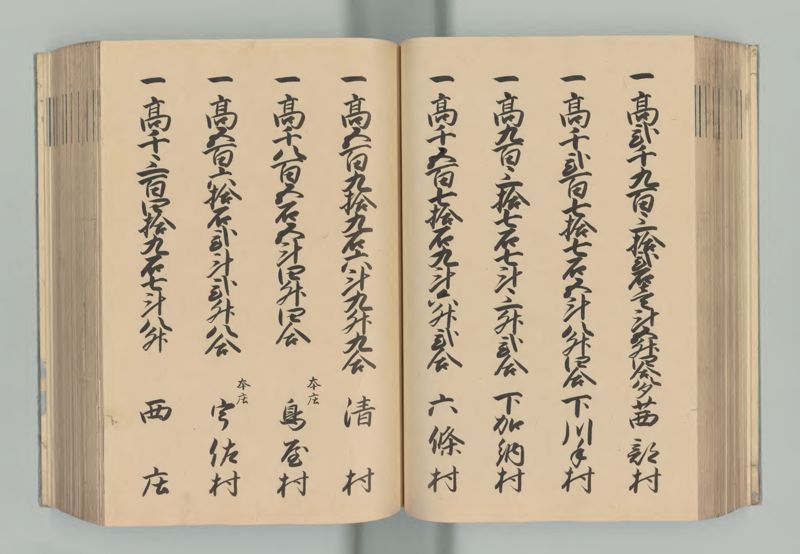 一高弐千九百三拾弐石壱斗五升四合夕茜部村
一高千弐百七拾七石五斗八升四合下川手村
一高九百三拾七石七斗三升弐合下加納村
一高千五百七拾石九斗六升弐合六條村
一高五百九拾九石六斗九升九合清村
一高千八百五石五斗四升四合本庄鳥屋村
一高五百六拾石弐斗弐升八合本庄宇佐村
一高千三百四拾九石七斗八升西庄